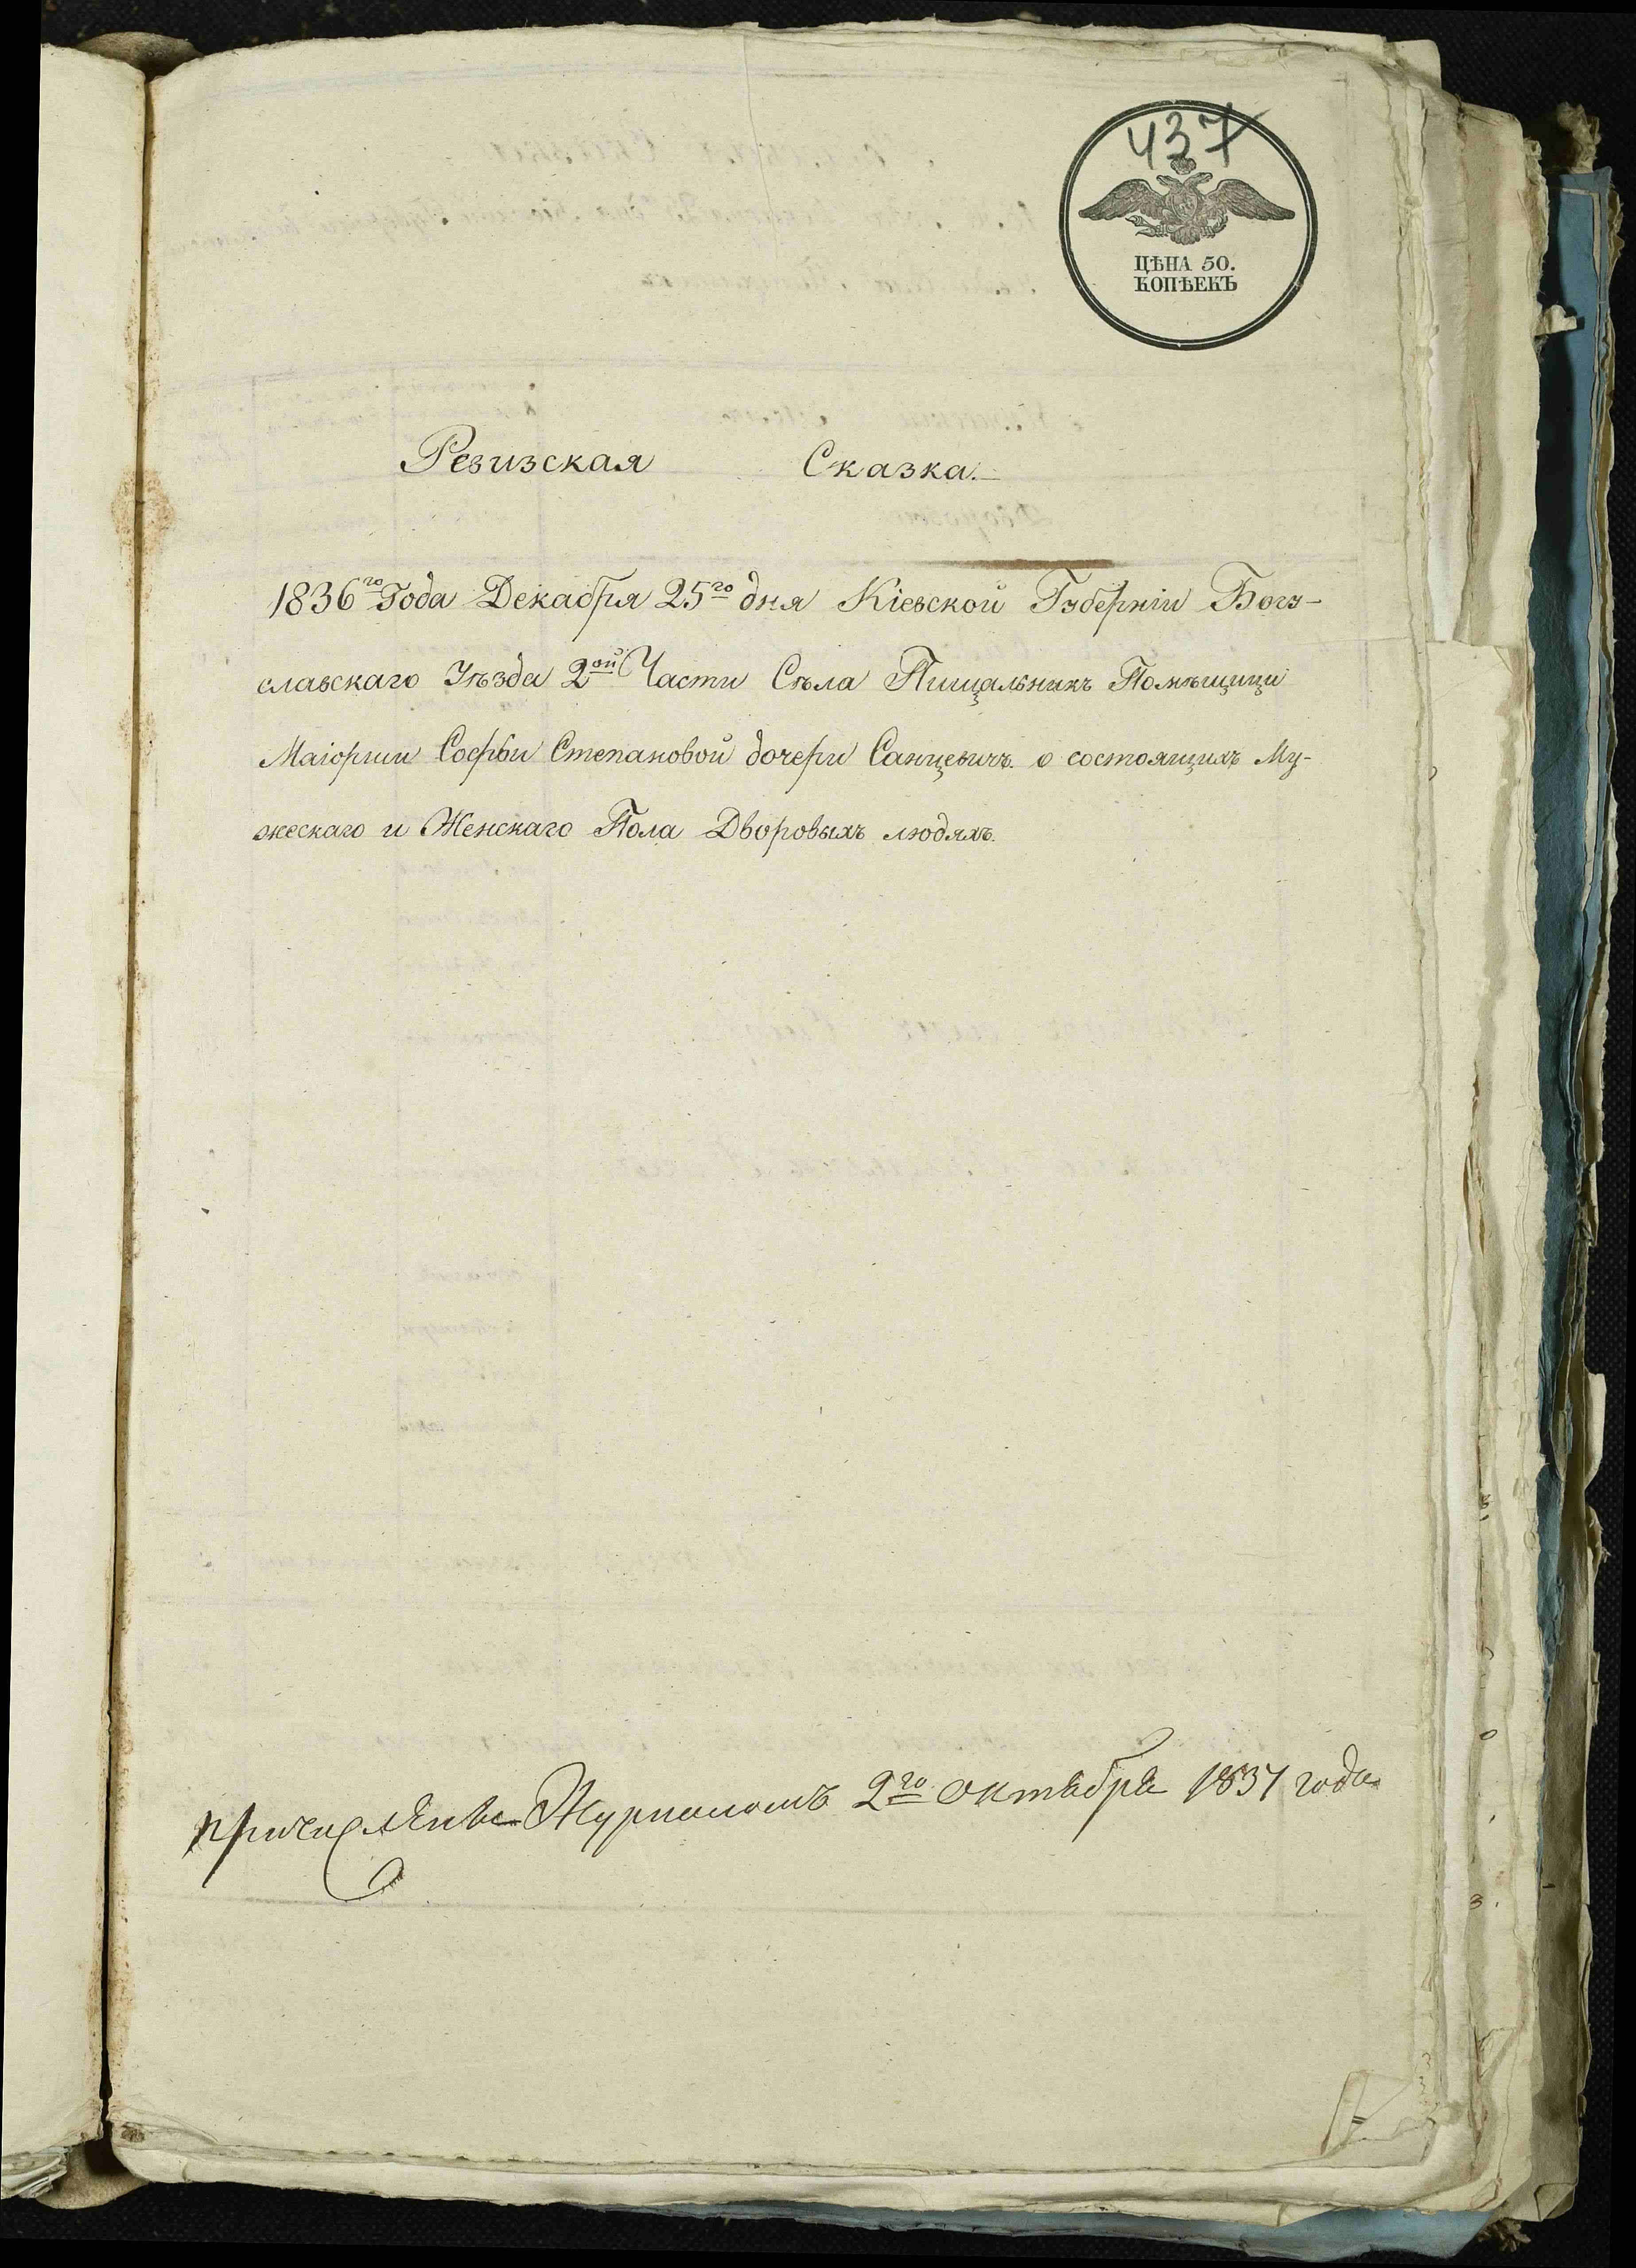 437
ЦѢНА 50.
КОПѢЕКЪ
Ревизская Сказка.
1836го Года Декабря 25го дня Кіевской Губерніи Богу-
славскаго Уѣзда 2ой Части Сѣла Пищальникъ Помѣщици
Маіорши Софьи Степановой дочери Санцевичъ о состоящихъ Му-
жескаго и Женскаго Пола Дворовыхъ людяхъ.
причислены Журналомъ 2го октября 1837 года